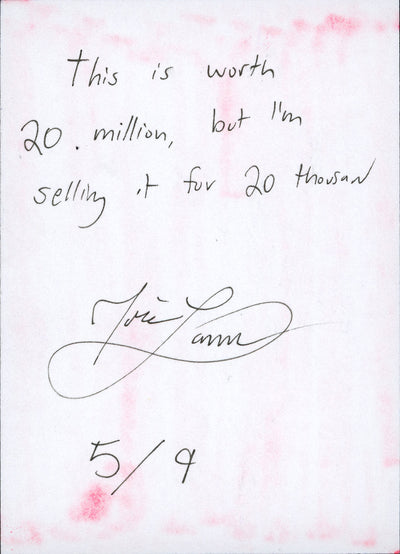 This is worth
20. million, but I'm
selling it for 20 thousan
5/9